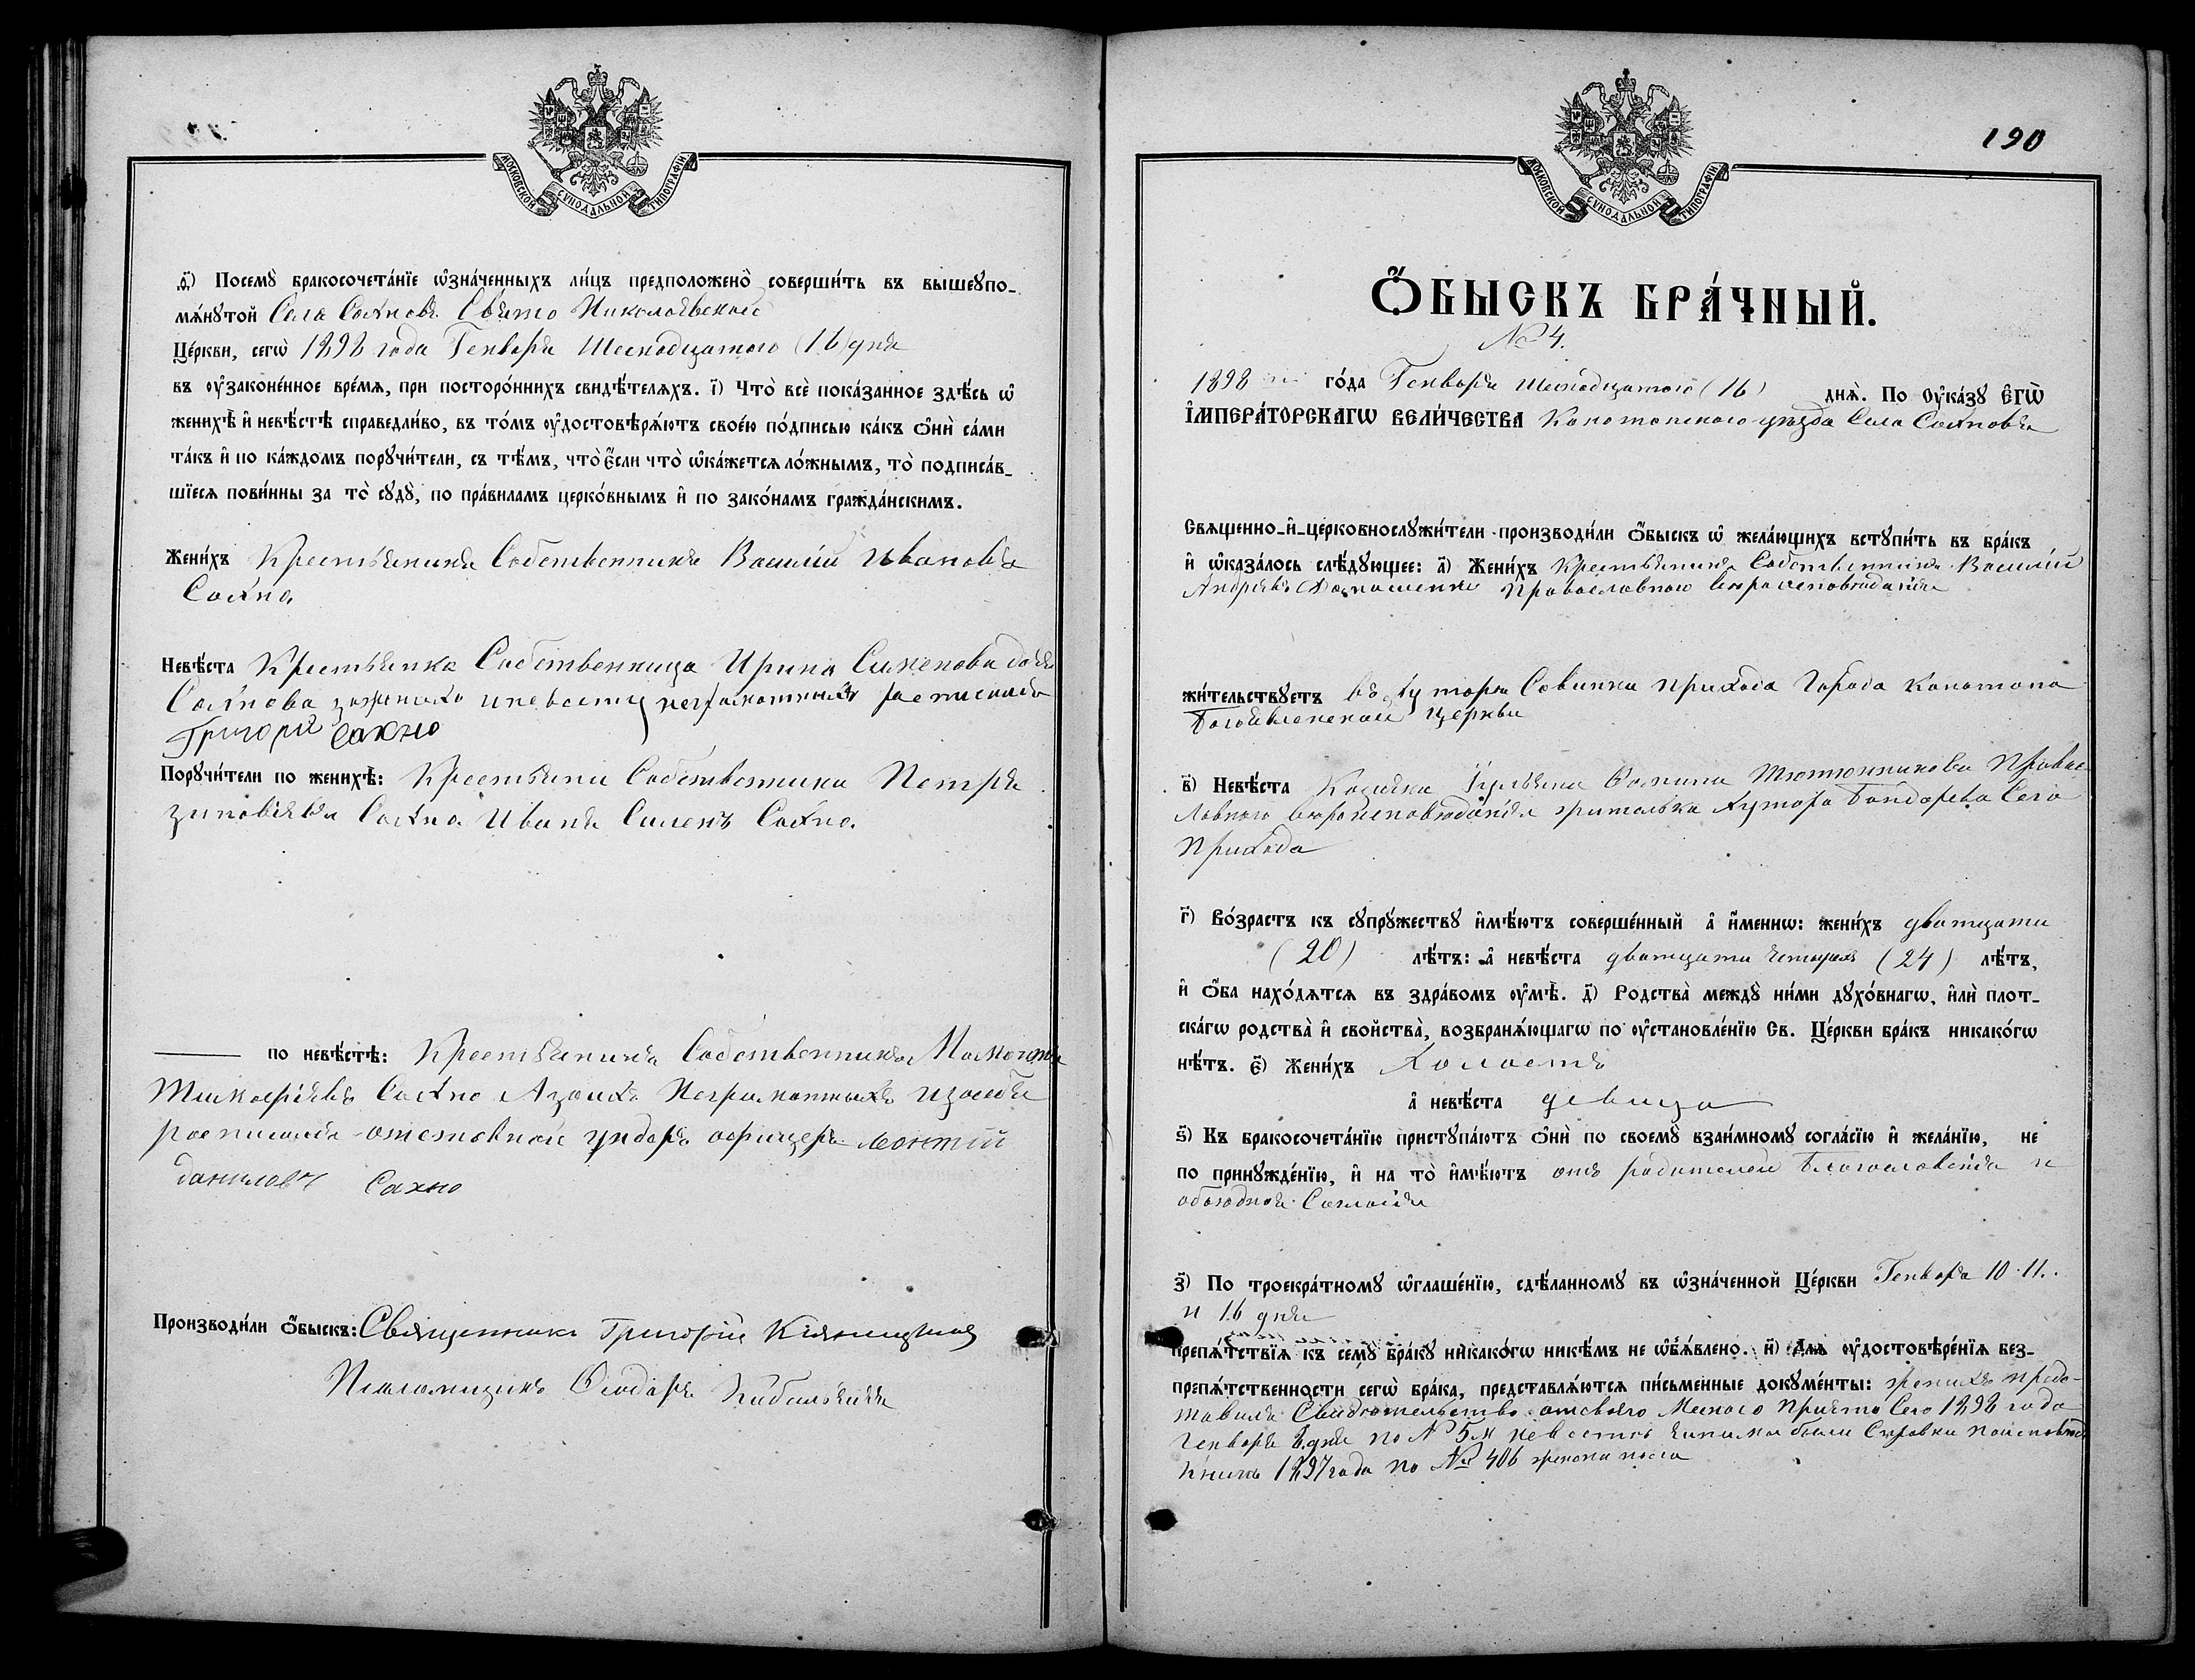 МОСКОВСКОЙ СѴНОДАЛЬНОЙ ТИПОГРАФІИ
ѳ҃) Посемꙋ̀ бракосочета́нїе ѡ҆зна́ченныхъ ли́цъ предположено̀ соверши́ть въ вышеꙋпо-
мѧ́нꙋтой Села Сахновъ Свято Николаевской
Це́ркви, сегѡ̀ 1898 года Генваря Шеснадцатого (16) дня
въ ᲂу҆законе́нное вре́мѧ, при посторо́ннихъ свидѣ́телѧхъ. і҃) Что̀ всѐ пока́занное здѣ́сь ѡ҆
женихѣ̀ и҆ невѣ́стѣ справедли́во, въ то́мъ ᲂу҆достовѣрѧ́ютъ свое́ю по́дписью ка́къ ѻ҆нѝ са́ми
та́къ и҆ по ка́ждомъ порꙋчи́тели, съ тѣ́мъ, что̀ є҆́сли что̀ ѡ҆ка́жетсѧ ло́жнымъ, то̀ подписа́в-
шїесѧ пови́нны за то̀ сꙋдꙋ̀, по пра́виламъ церко́внымъ и҆ по зако́намъ гражда́нскимъ.
Жени́хъ Крестьянинъ Собственникъ Василій Ивановъ
Сахно
Невѣ́ста Крестьянка Собственница Ирина Сименова дочь
Сахнова за жениха и невесту неграмотныхъ росписался
Григорій Сахно
Порꙋчи́тели по женихѣ̀: Крестьяни Собственники Петръ
Зиновіявъ Сахно Иванъ Сименъ Сахно.
по невѣ́стѣ: Крестьянинъ Собственникъ
Тимофѣевъ Сахно А за ихъ Неграмотныхъ
росписался отставной ундеръ офицеръ Леонтій
Данилович Сахно
Производи́ли ѻ҆́быскъ: Священникъ Григорій
Псаломщикъ Ѳеодоръ
МОСКОВСКОЙ СѴНОДАЛЬНОЙ ТИПОГРАФІИ
190
Ѻ҆́БЫСКЪ БРА́ЧНЫЙ.
№ 4.
1898 го́да Генваря Шеснадцатого (16) днѧ̀. По ᲂу҆ка́зꙋ Є҆ГѠ̀
И҆МПЕРА́ТОРСКАГѠ ВЕЛИ́ЧЕСТВА Конотопского уѣзда Села Сахновъ
Свѧщенно-и҆-церковнослꙋжи́тели производи́ли ѻ҆́быскъ ѡ҆ жела́ющихъ встꙋпи́ть въ бра́къ
и҆ ѡ҆каза́лось слѣ́дꙋющее: а҃) Жени́хъ Крестьянинъ Собственникъ Василій
Андрѣевъ Православного вѣроисповѣданія
жи́тельствꙋетъ въ Хуторѣ Савинки прихода Города Конотопа
Богоявленской Церкви
в҃) Невѣ́ста Козачка Ѳомина Тютюнникова Правос
лавного вѣроисповѣданія жителька Хутора Бондарева Сего
Прихода
г҃) Во́зрастъ къ сꙋпрꙋ́жествꙋ и҆мѣ́ютъ соверше́нный а҆ и҆́меннѡ: жени́хъ дватцати
(20) лѣ́тъ: а҆ невѣ́ста дватцати четырехъ (24) лѣ́тъ,
и҆ ѻ҆́ба нахо́дѧтсѧ въ здра́вомъ ᲂу҆мѣ̀. д҃) Родства̀ междꙋ̀ ни́ми дꙋхо́внагѡ, и҆лѝ плот-
ска́гѡ родства̀ и҆ свойства̀, возбранѧ́ющагѡ по ᲂу҆становле́нїю Св. Це́ркви бра́къ никако́гѡ
нѣ́тъ. є҃) Жени́хъ Холостъ
а҆ невѣ́ста девица
ѕ҃) Къ бракосочета́нїю пристꙋпа́ютъ ѻ҆нѝ по своемꙋ̀ взаи́мномꙋ согла́сїю и҆ жела́нїю, не
по принꙋжде́нїю, и҆ на то̀ и҆мѣ́ютъ отъ родителей Благословенія и
обоюдная Согласія
з҃) По троекра́тномꙋ ѡ҆глаше́нїю, сдѣ́ланномꙋ въ ѡ҆зна́ченной Це́ркви Генваря 10. 11.
и 16 дня
препѧ́тствїѧ къ семꙋ̀ бра́кꙋ никако́гѡ никѣ́мъ не ѡ҆б̾ѧ́влено. и҃) Длѧ ᲂу҆достовѣре́нїѧ без-
препѧ́тственности сегѡ̀ бра́ка, представлѧ́ютсѧ пи́сьменные докꙋме́нты: женихъ предс-
тавилъ Свидѣтельство отсвоего Меского Причта Сего 1898 года
Генваря дня по № 5м невестѣ чинима была Справки поисповѣд
Книгѣ 1897 года по № 406 женска пола